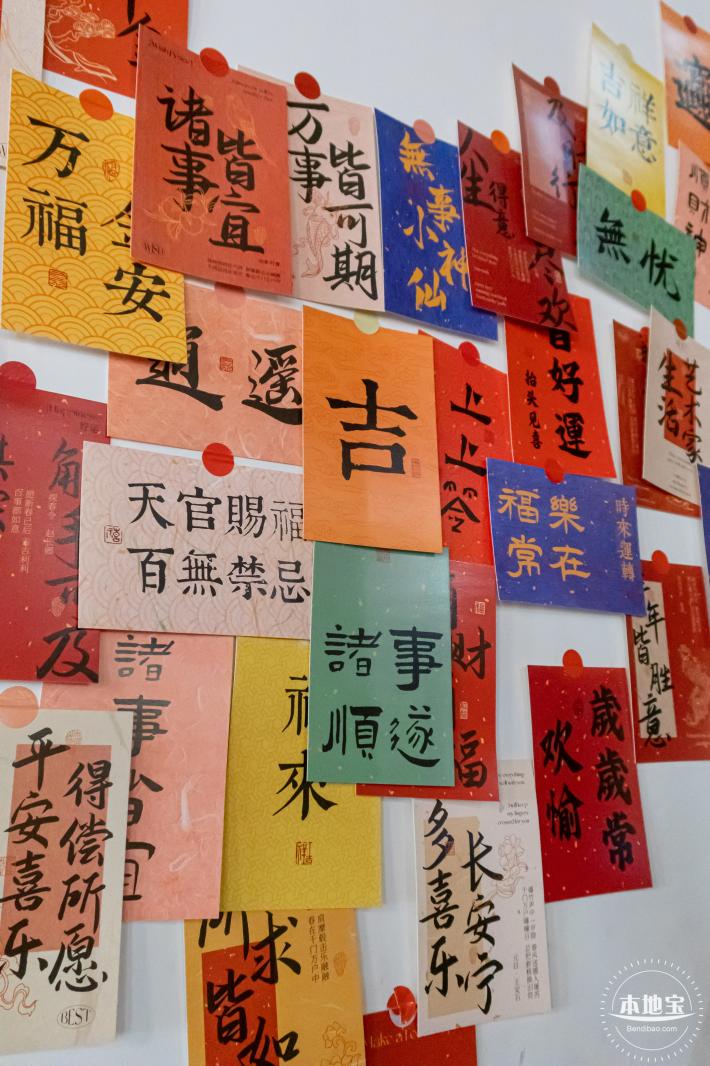 万福
金安
诸事
皆宜
WISH
万事
皆可期
無事
小神仙
人生
得意
尽欢
及
行
吉祥
如意
無忧
順財神
逍遥
吉
上上签
皆好運
抬头见喜
艺术家
生活
天官賜福
百無禁忌
樂在
福常
時來運轉
諸事
順遂
諸事皆宜
福來
財
福
年皆胜意
歲歲常
欢愉
得偿所愿
平安喜乐
BEST
长安宁
多喜乐
所求
皆如
万事都如意
本地宝
Bendibao.com